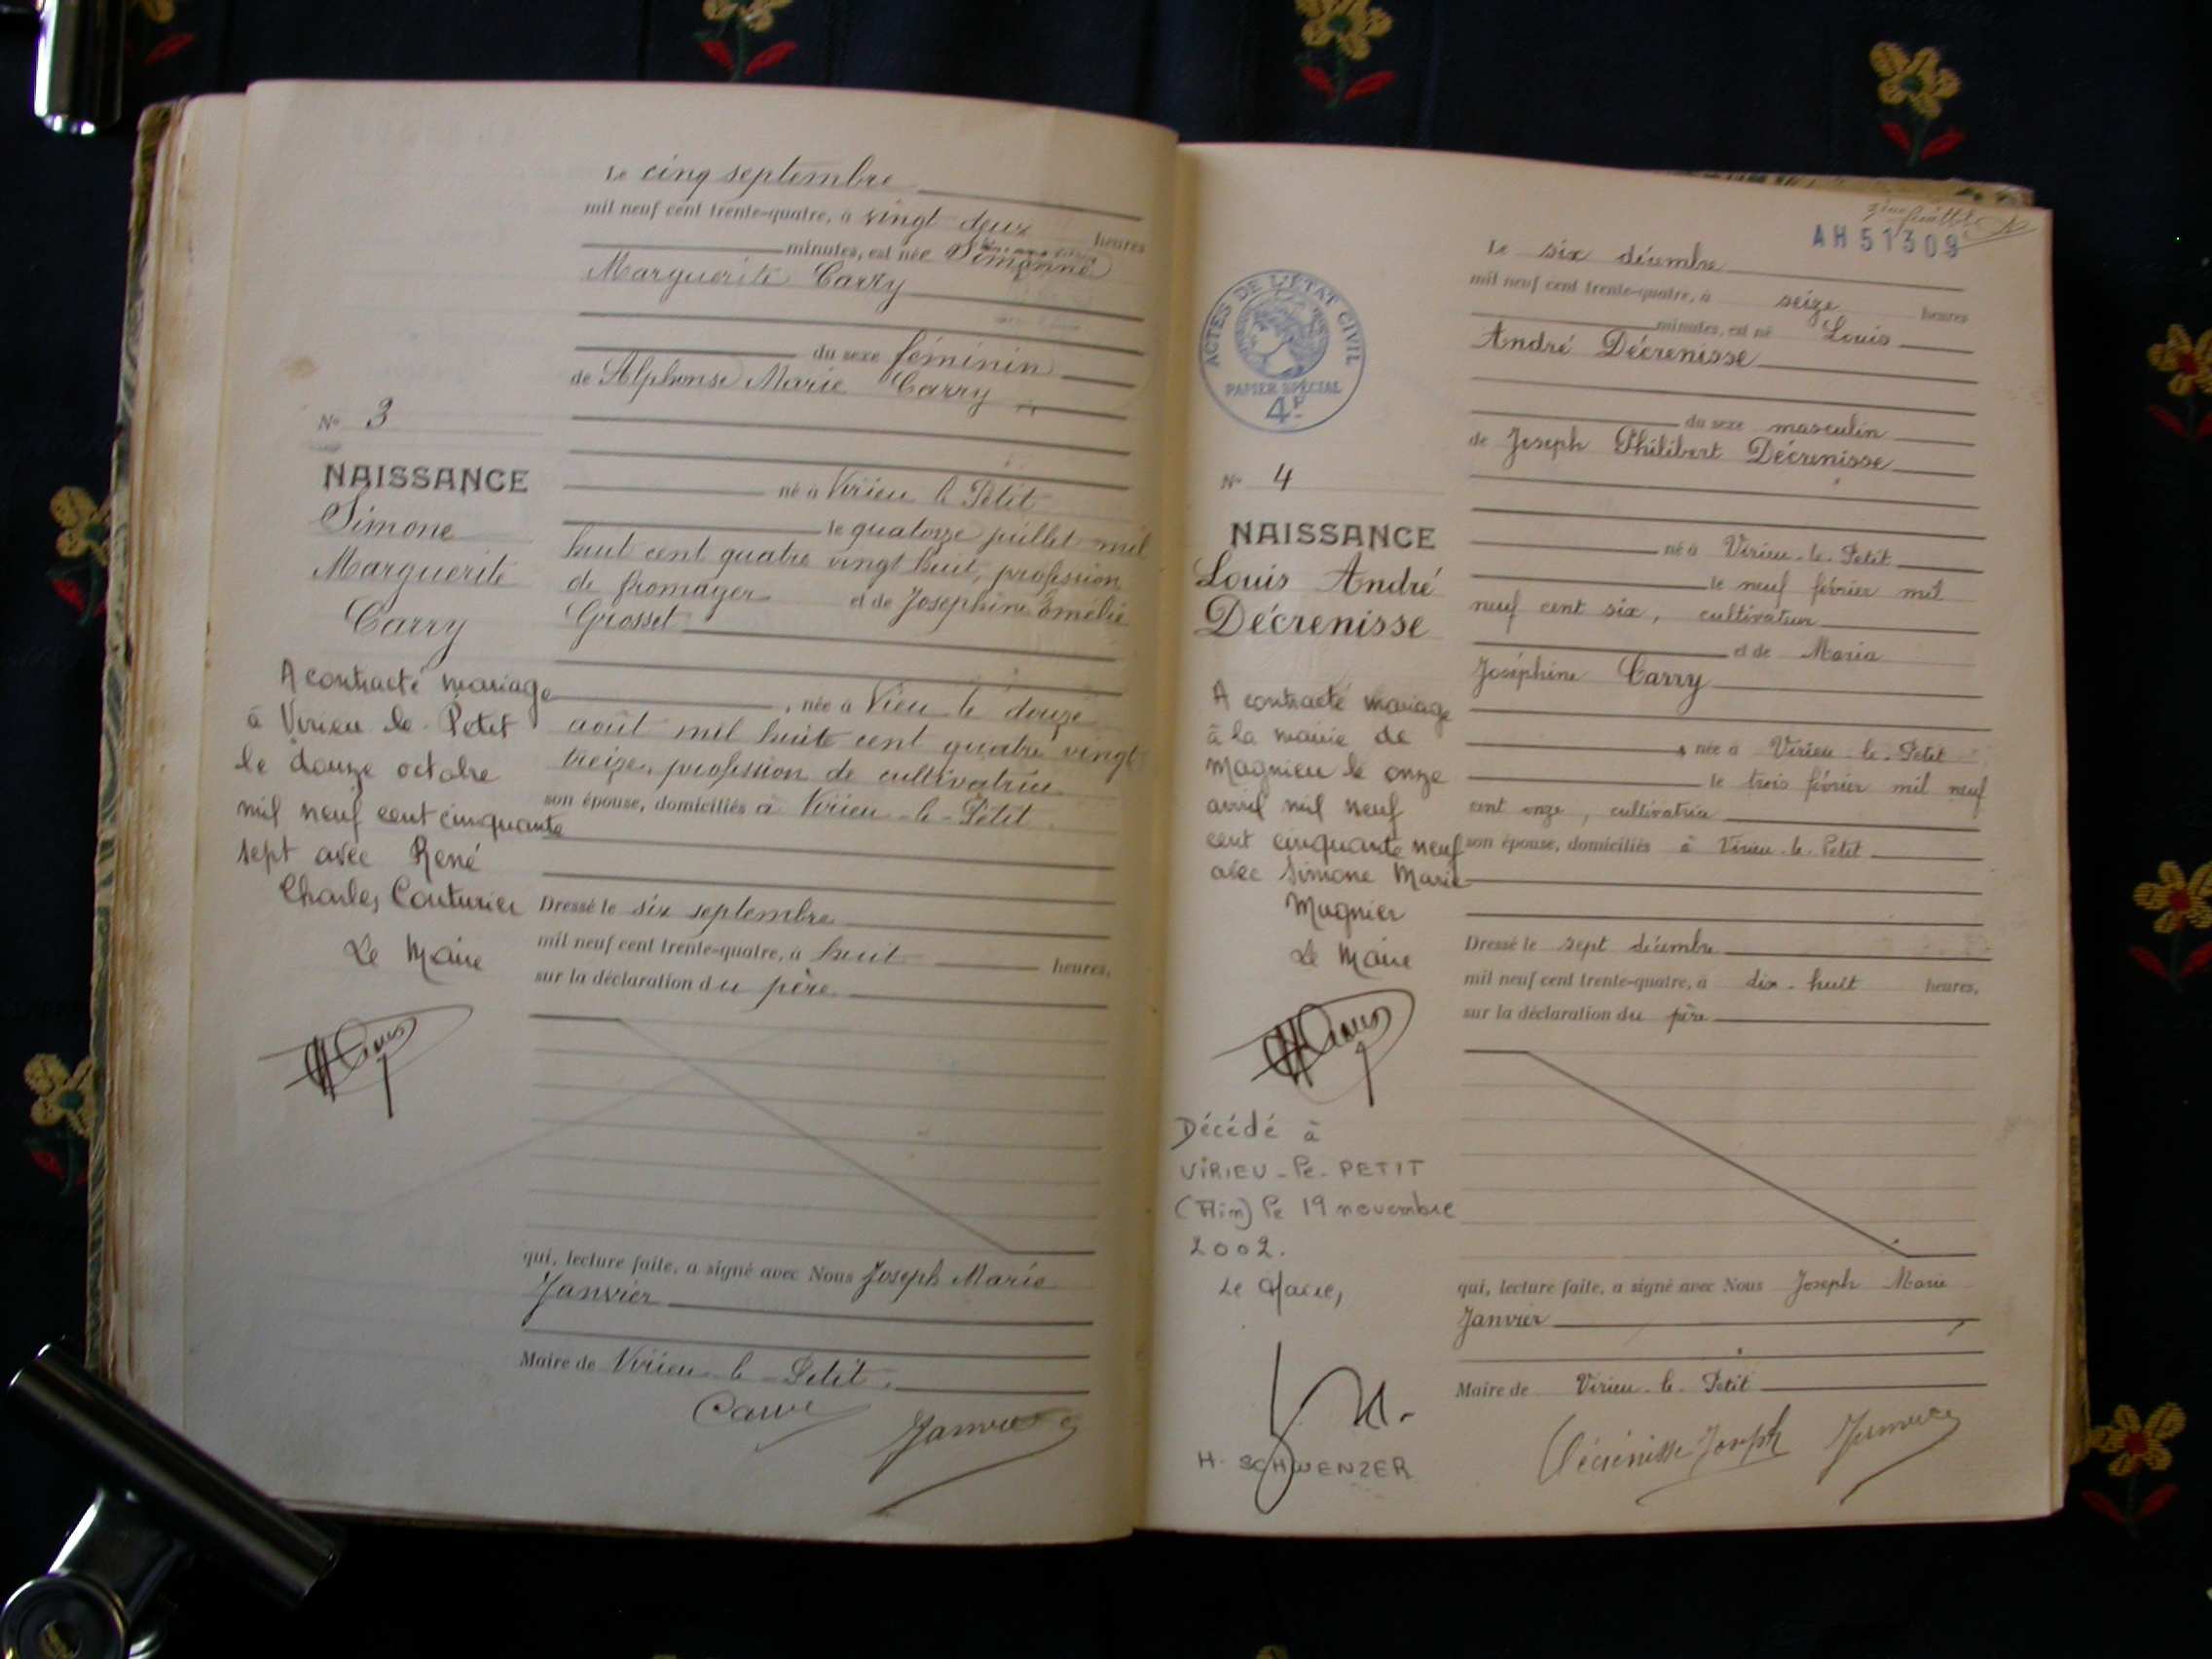 Le cinq septembre
mil neuf cent trente-quatre, à vingt deux heures
minutes, est née Simonne
Marguerite Carry
du sexe féminin
de Alphonse Marie Carry
né à Virieu le Petit
le quatorze juillet mil
huit cent quatre vingt huit, profession
de fromager et de Joséphine Emélie
Grosset
, née à Vieu le douze
août mil huit cent quatre vingt
treize, profession de cultivatrice
son épouse, domiciliés à Virieu-le-Petit.
Dressé le six septembre
mil neuf cent trente-quatre, à huit heures,
sur la déclaration du père
qui, lecture faite, a signé avec Nous Joseph Marie
Janvier
Maire de Virieu-le-Petit.
Janvier
No 3
NAISSANCE
Simone
Marguerite
Carry
A contracté mariage
à Virieu-le-Petit
le douze octobre
mil neuf cent cinquante
sept avec René
Charles Couturier
Le Maire
AH51309
Le six décembre
mil neuf cent trente-quatre, à seize heures
minutes, est né Louis
André Décrenisse
du sexe masculin
de Joseph Philibert Décrenisse
né à Virieu-le-Petit
le neuf février mil
neuf cent six, cultivateur
et de Maria
Joséphine Carry
, née à Virieu-le-Petit
le trois février mil neuf
cent onze, cultivatrice
son épouse, domiciliés à Virieu-le-Petit
Dressé le sept décembre
mil neuf cent trente-quatre, à dix-huit heures,
sur la déclaration du père
qui, lecture faite, a signé avec Nous Joseph Marie
Janvier
Maire de Virieu-le-Petit
Décrénisse Joseph Janvier
ACTES DE L'ÉTAT CIVIL
PAPIER SPÉCIAL
4F
No 4
NAISSANCE
Louis André
Décrenisse
A contracté mariage
à la mairie de
Magnieu le onze
avril mil neuf
cent cinquante neuf
avec Simone Marie
Mugnier
Le Maire
Décédé à
VIRIEU-le-PETIT
(Ain) le 19 novembre
2002.
Le Maire,
H. SCHWENZER